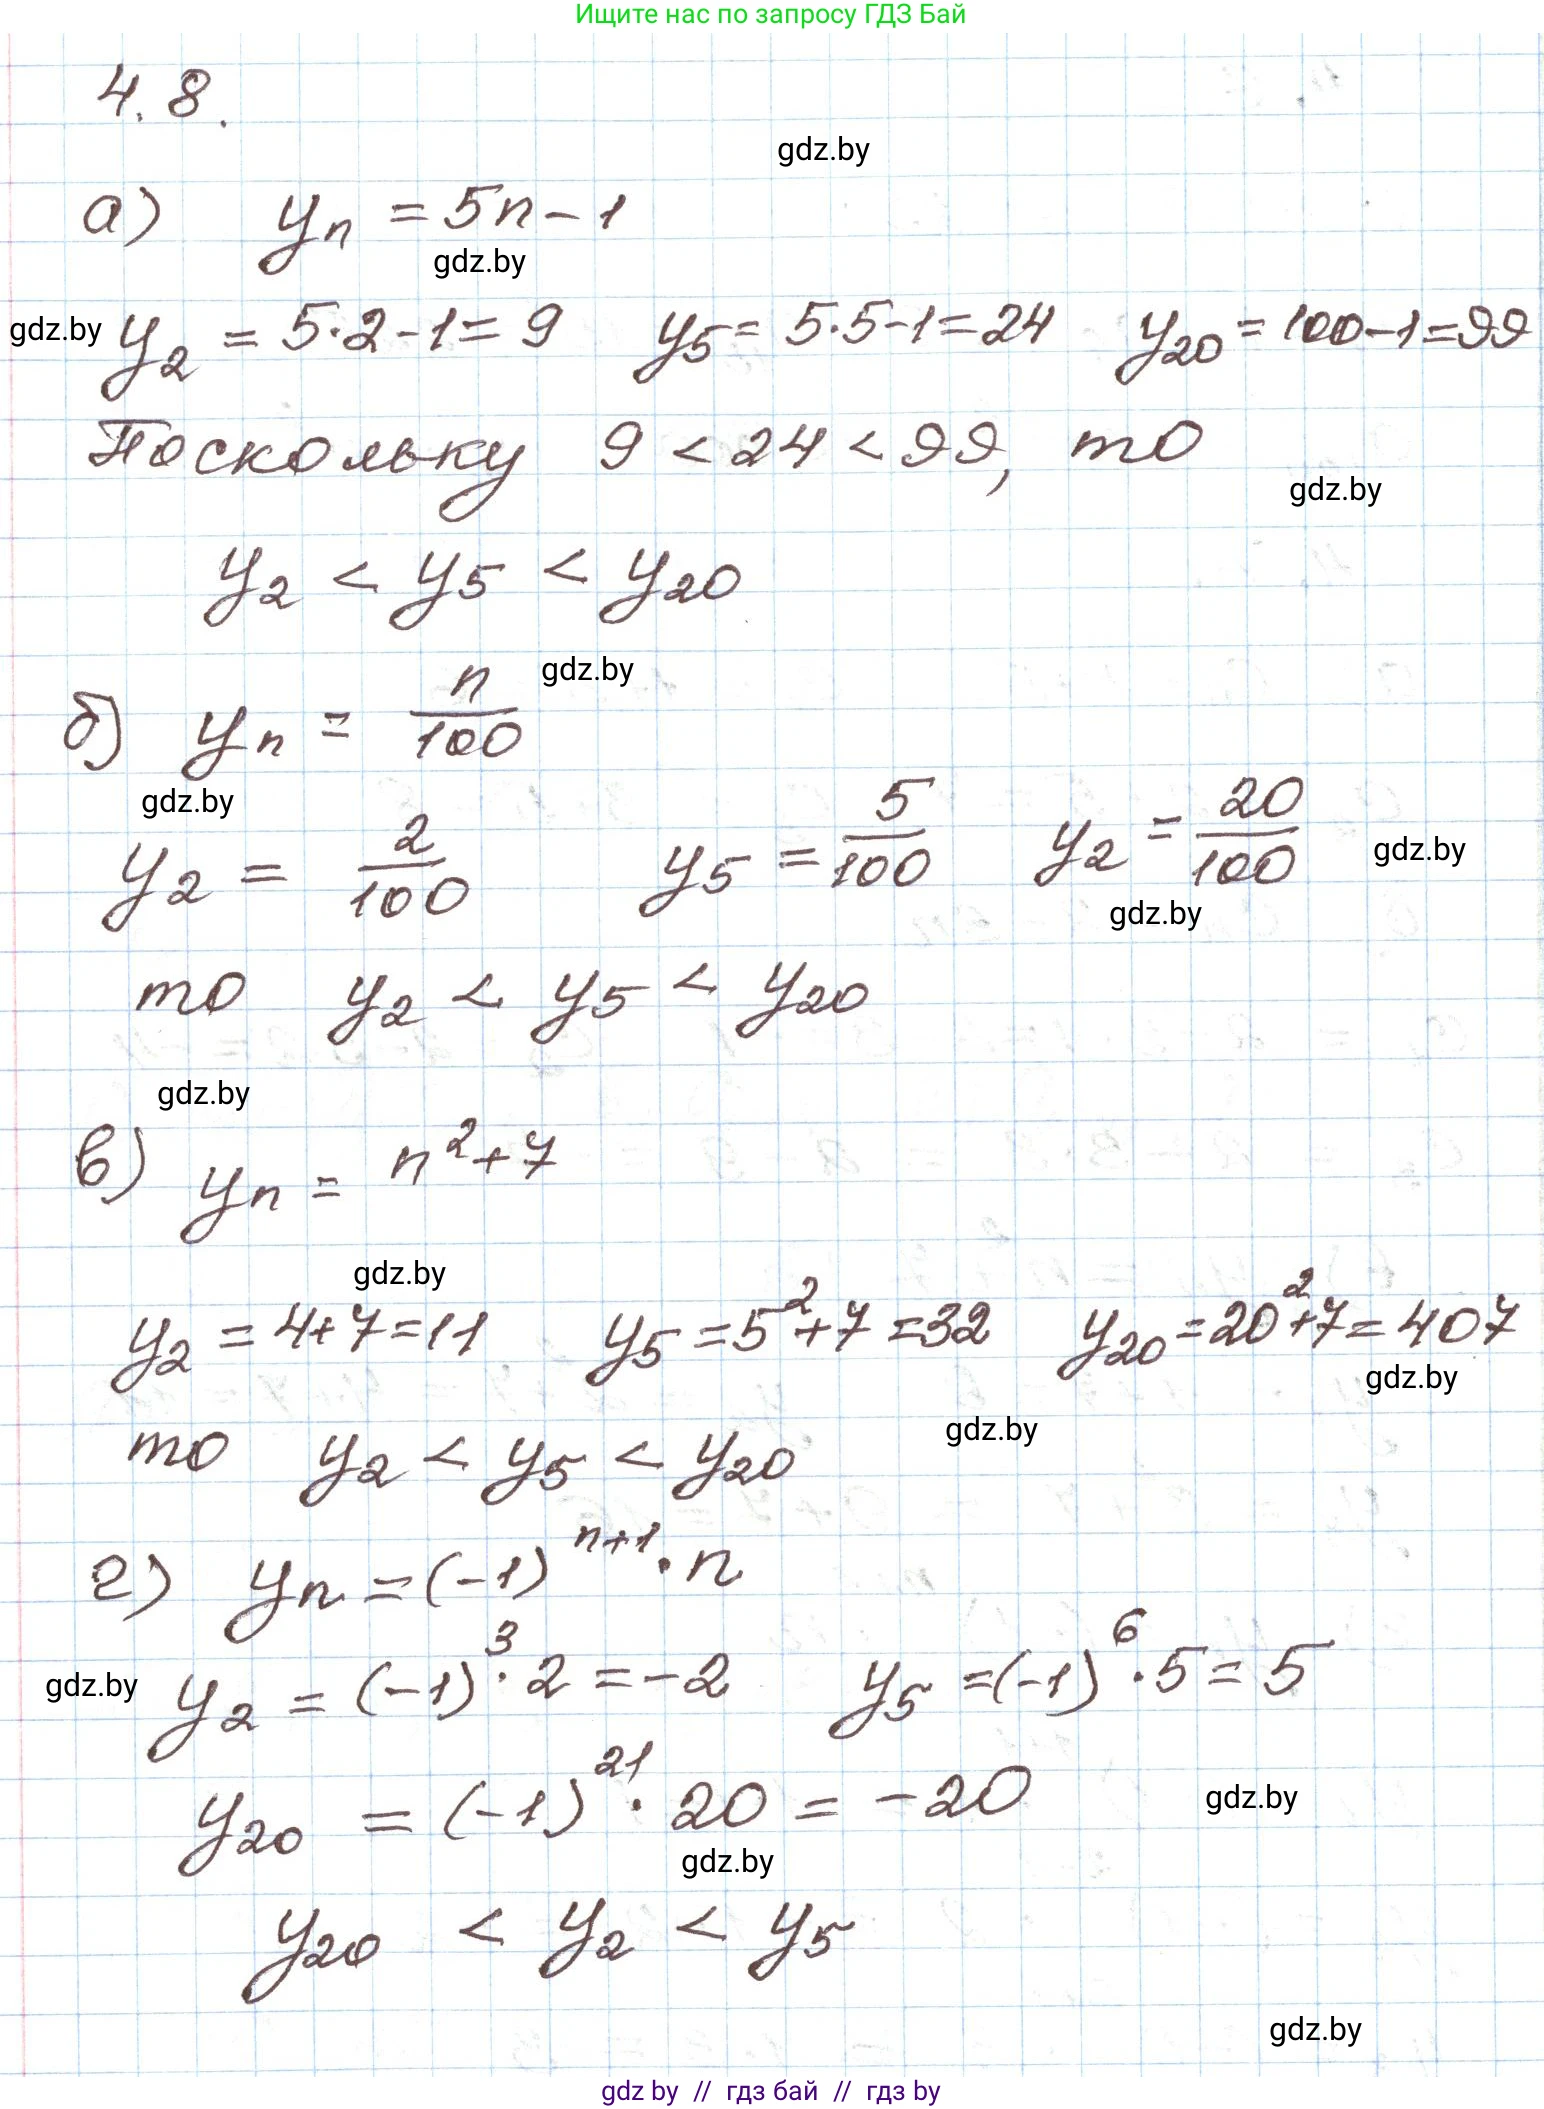 Ищите нас по запросу ГДЗ Бай
4.8.
gdz.by
а) yₙ = 5n - 1
gdz.by
gdz.by y₂ = 5·2-1=9 y₅= 5·5-1=24 y₂₀=100-1=99
Поскольку 9 < 24 < 99, то
gdz.by
y₂ < y₅ < y₂₀
gdz.by
б) yₙ = n/100
gdz.by
y₂ = 2/100 y₅ = 5/100 y₂ = 20/100 gdz.by
gdz.by
то y₂ < y₅ < y₂₀
gdz.by
в) yₙ = n²+7
gdz.by
y₂ = 4+7=11 y₅ =5²+7=32 y₂₀=20²+7=407
gdz.by
gdz.by
то y₂ < y₅ < y₂₀
г) yₙ =(-1)ⁿ⁺¹·n
gdz.by y₂ = (-1)³·2 =-2 y₅ =(-1)⁶·5=5
y₂₀ = (-1)²¹·20 = -20 gdz.by
gdz.by
y₂₀ < y₂ < y₅
gdz.by
gdz by // гдз бай // гдз by